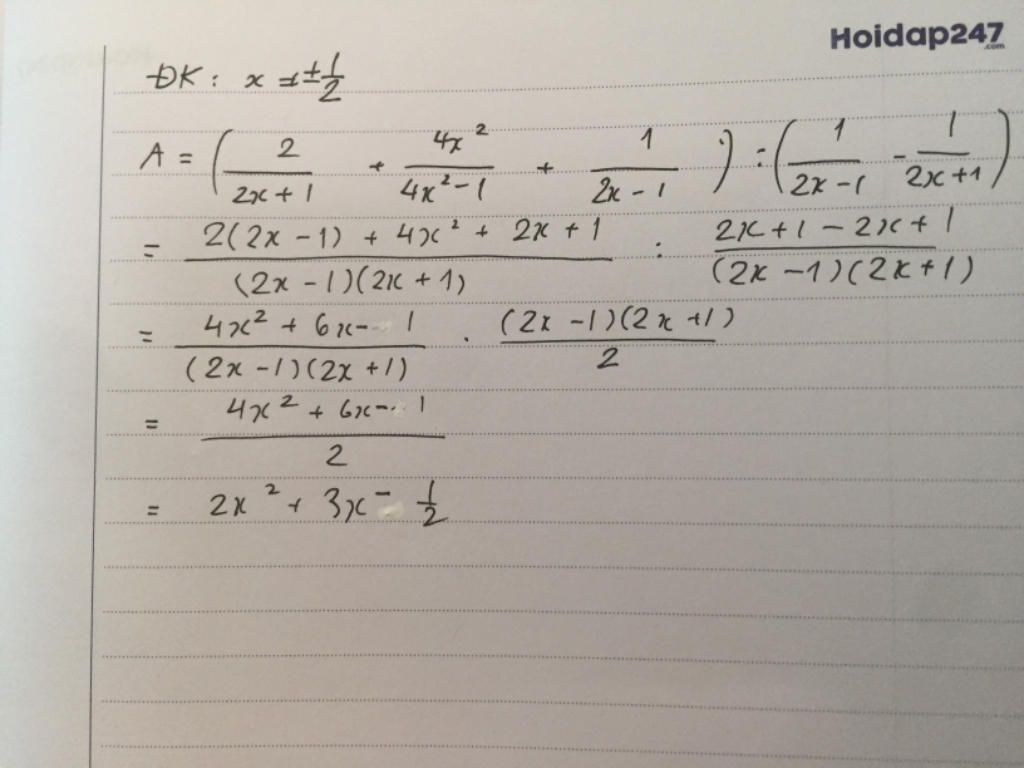 Hoidap247
.com
ĐK: x ≠ ± 1/2
A = ( 2/(2x + 1) + 4x²/(4x² - 1) + 1/(2x - 1) ) : ( 1/(2x - 1) - 1/(2x + 1) )
= (2(2x - 1) + 4x² + 2x + 1)/((2x - 1)(2x + 1)) : (2x + 1 - 2x + 1)/((2x - 1)(2x + 1))
= (4x² + 6x - 1)/((2x - 1)(2x + 1)) . ((2x - 1)(2x + 1))/2
= (4x² + 6x - 1)/2
= 2x² + 3x - 1/2